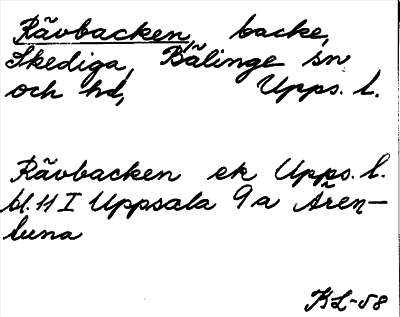 Rävbacken, backe,
Skediga, Bälinge sn
och hd, Upps. l.
Rävbacken ek Upps. l.
bl. 11 I Uppsala 9a Ären-
tuna
KL-58